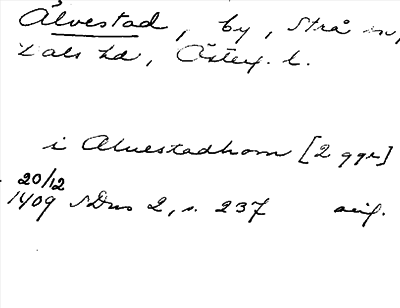 Älvestad, by, Strå sn,
Dals hd, Österg. l.
i Aluestadhom [2 ggr]
20/12
1409 SDns 2, s. 237 avig.